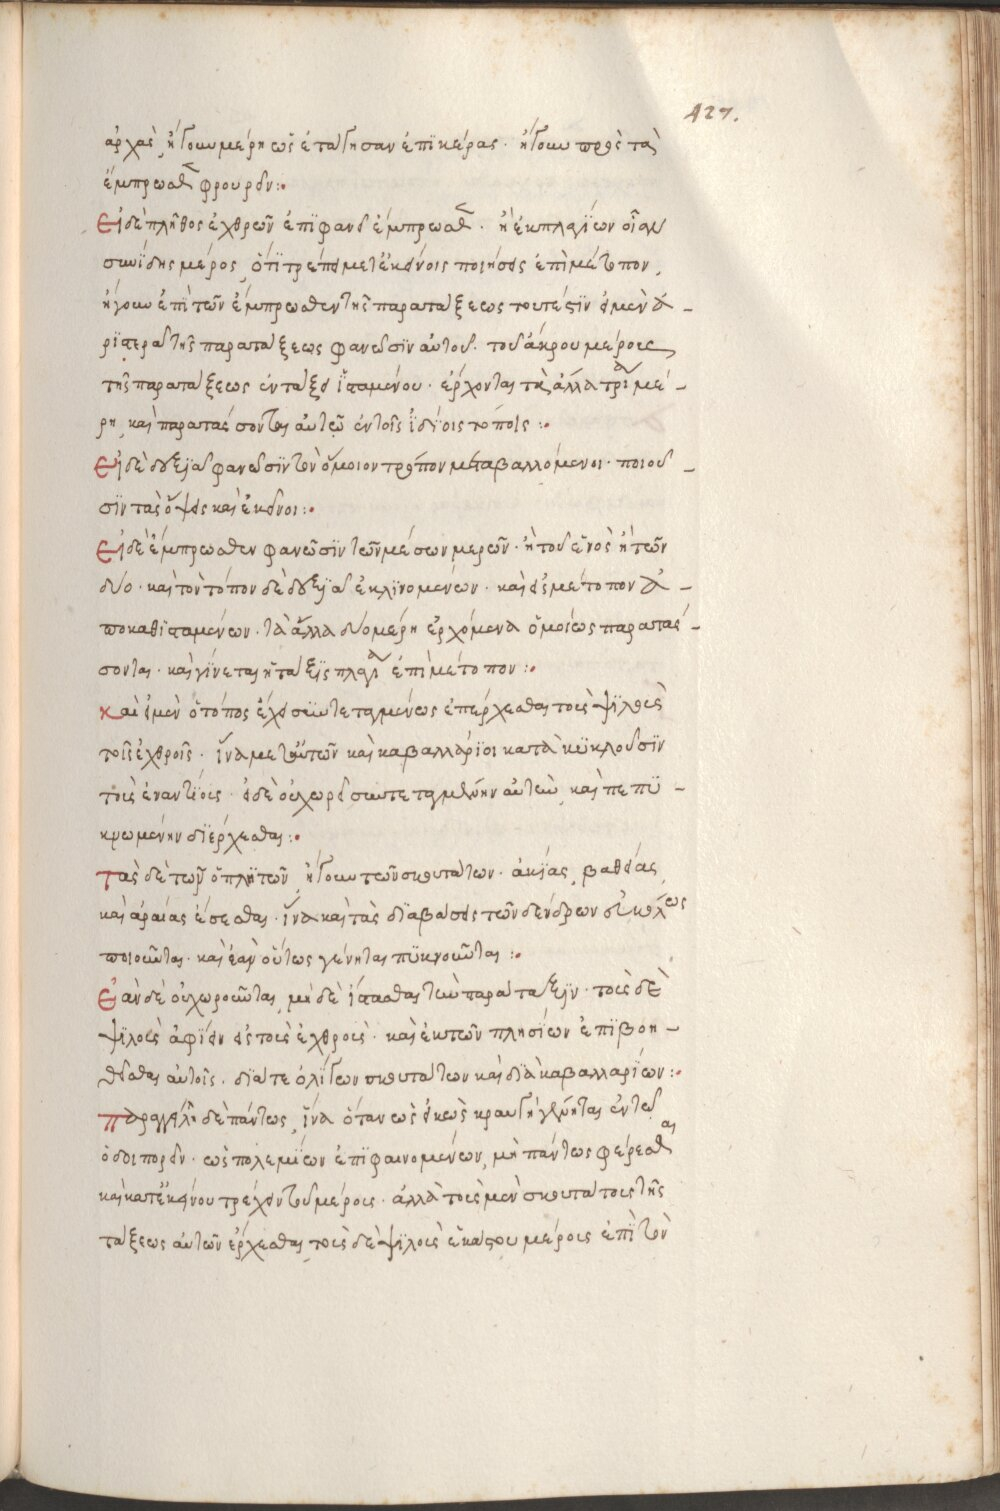 427.
ἀρχὰς, ἤγουν μέρη ὡς ἐτάγησαν ἐπὶ κέρας· ἤγουν πρὸς τὰ
ἔμπροσθεν φρουρεῖν:·
Εἰ δὲ πλῆθος ἐχθρῶν ἐπιφανεῖ ἔμπροσθεν· ἢ ἐκ πλαγίων οἷαν
συνίδῃς μέρος, ὅτι τρέπει μετ' ἐκείνοις ποιήσεις ἐπὶ μέτωπον,
ἤγουν ἐπὶ τῶν ἔμπροσθεν τῆς παρατάξεως τουτέστιν εἰ μὲν ἀ-
ριστερὰ τῆς παρατάξεως φανοῦσιν αὐτοῦ· τοῦ ἄκρου μέρους
τῆς παρατάξεως ἐν τάξει ἱσταμένου· ἔρχονται τὰ ἄλλα τρία μέ-
ρη, καὶ παρατάσσονται αὐτῷ ἐν τοῖς ἰδίοις τόποις:·
Εἰ δὲ δεξιὰ φανοῦσιν τὸν ὅμοιον τρόπον μεταβαλλόμενοι· ποιοῦ-
σιν τὰς ὄψεις καὶ ἐκεῖνοι:·
Εἰ δὲ ἔμπροσθεν φανῶσιν τῶν μέσων μερῶν· ἢ τοῦ ἑνὸς ἢ τῶν
δύο· καὶ τὸν τόπον δὲ δεξιὰ ἐκκλινομένων· καὶ εἰς μέτοπον ἀ-
ποκαθισταμένων· τὰ ἄλλα δύο μέρη ἐρχόμενα ὁμοίως παρατάσ-
σονται· καὶ γίνεται ἡ τάξις πλαγία ἐπὶ μέτοπον:·
Καὶ εἰ μὲν ὁ τόπος ἔχει συντεταγμένως ἐπέρχεσθαι τοὺς ψιλοὺς
τοῖς ἐχθροῖς· ἵνα μετ' αὐτῶν καὶ καβαλλάριοι κατακυκλοῦσιν
τοὺς ἐναντίους· εἰ δὲ οὐ χωρεῖ συντεταγμένην αὐτὴν, καὶ πεπυ-
κνωμένην διέρχεσθαι:·
Τὰς δὲ τῶν ὁπλητῶν, ἤγουν τῶν σκουτάτων· ἀκίας, βαθείας,
καὶ ἀραίας ἔσεσθαι· ἵνα καὶ τὰς διαβάσεις τῶν δένδρων εὐκόλως
ποιοῦνται· καὶ ἐὰν οὕτως γένηται πυκνοῦνται:·
Ἐὰν δὲ οὐ χωροῦνται, μὴ δὲ ἵστασθαι τὴν παράταξιν· τοὺς δὲ
ψιλοὺς ἀφιεῖν εἰς τοὺς ἐχθροὺς· καὶ ἐκ τῶν πλησίων ἐπιβοη-
θεῖσθαι αὐτοῖς· διά τε ὀλίγων σκουτάτων καὶ διὰ καβαλλαρίων:·
Παραγγέλλῃ δὲ πάντως, ἵνα ὅταν ὡς εἰκὸς κραυγὴ γένηται ἐν τῷ
ὁδοιπορεῖν· ὡς πολεμίων ἐπιφαινομένων, μὴ πάντως φέρεσθαι
καὶ κατ' ἐκείνου τρέχειν τοῦ μέρους· ἀλλὰ τοὺς μὲν σκουτάτους τῆς
τάξεως αὐτῶν ἔρχεσθαι, τοὺς δὲ ψιλοὺς ἑκάστου μέρους ἐπὶ τὸν